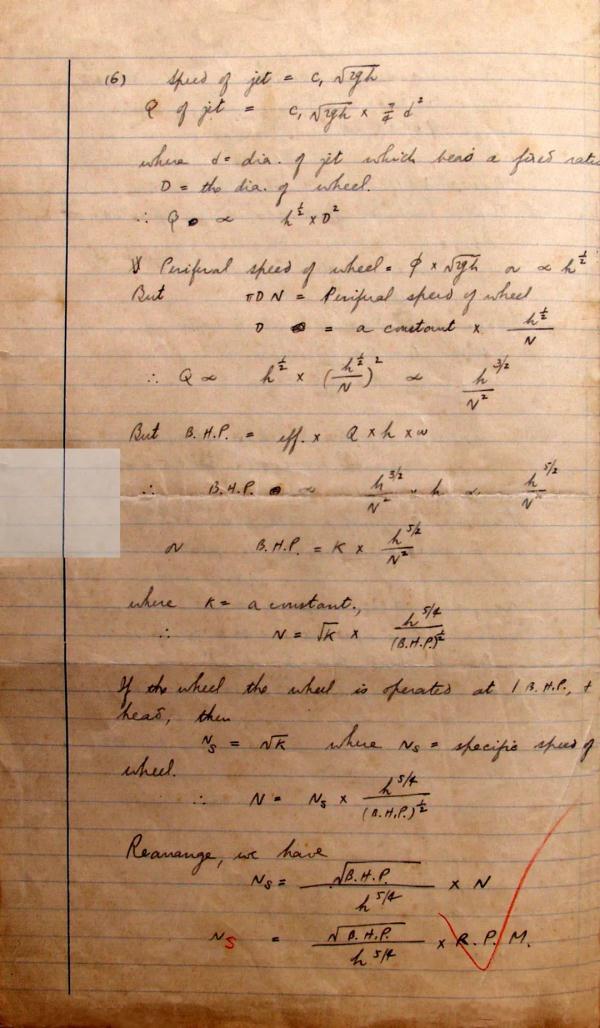 (6) Speed of jet = C₁ √2gh
Q of jet = C₁ √2gh × π/4 d²
where d = dia. of jet which bears a fixed
D = the dia. of wheel.
∴ Q ∝ h^½ × D²
Periferal speed of wheel = φ × √2gh or ∝ h^½
But πDN = Periferal speed of wheel
D = a constant × h^½/N
∴ Q ∝ h^½ × (h^½/N)² ∝ h^3/2/N²
But B.H.P. = eff. × Q × h × w
∴ B.H.P. ∝ h^3/2/N² × h ∝ h^5/2/N²
or B.H.P. = K × h^5/2/N²
where K = a constant.,
∴ N = √K × h^5/4/(B.H.P.)^½
If the wheel the wheel is operated at 1 B.H.P.,
head, then
N_S = √K where N_S = specific speed of
wheel.
∴ N = N_S × h^5/4/(B.H.P.)^½
Rearrange, we have
N_S = √B.H.P./h^5/4 × N
N_S = √B.H.P./h^5/4 × R.P.M.